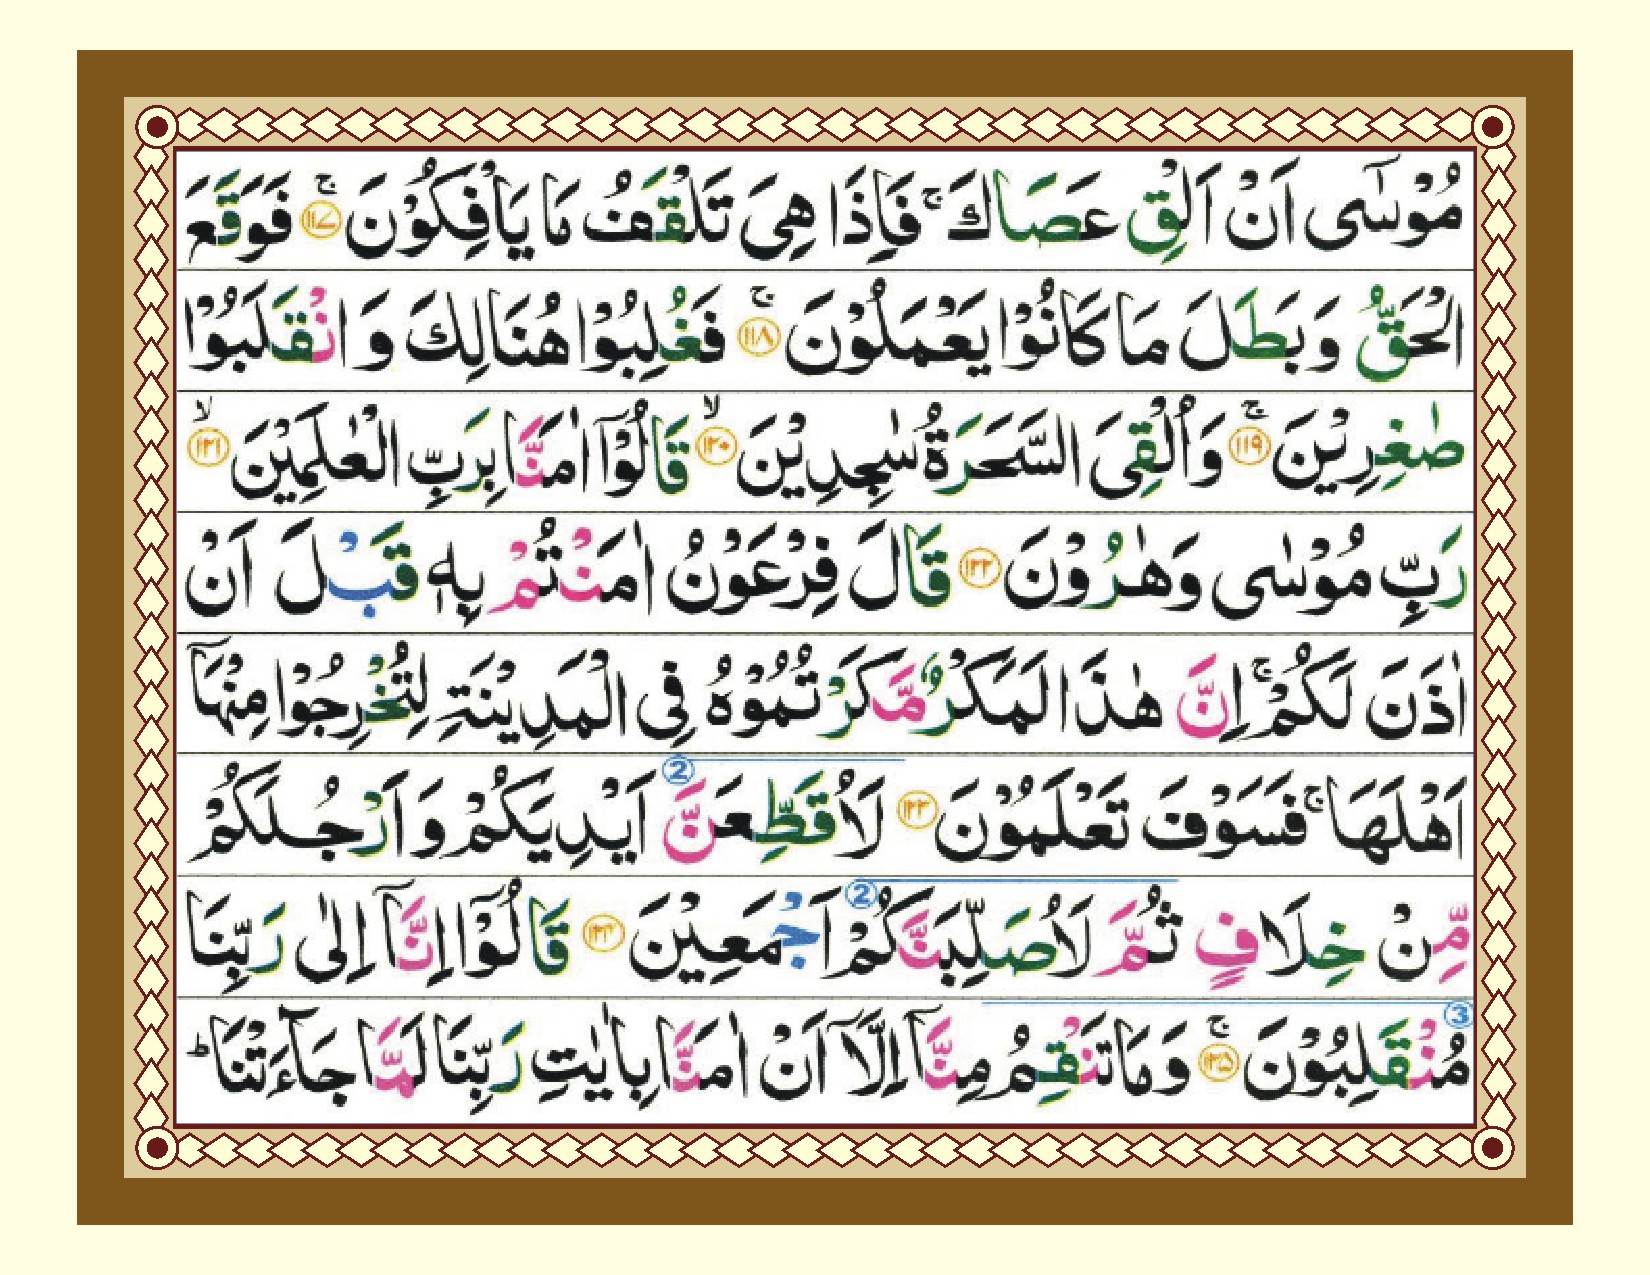 مُوْسٰٓى اَنْ اَلْقِ عَصَاكَ ۚ فَاِذَا هِيَ تَلْقَفُ مَا يَاْفِكُوْنَ ۚ ﴿۱۱۷﴾ فَوَقَعَ
الْحَقُّ وَ بَطَلَ مَا كَانُوْا يَعْمَلُوْنَ ۚ ﴿۱۱۸﴾ فَغُلِبُوْا هُنَالِكَ وَ انْقَلَبُوْا
صٰغِرِيْنَ ۚ ﴿۱۱۹﴾ وَ اُلْقِيَ السَّحَرَةُ سٰجِدِيْنَ ۙ ﴿۱۲۰﴾ قَالُوْۤا اٰمَنَّا بِرَبِّ الْعٰلَمِيْنَ ۙ ﴿۱۲۱﴾
رَبِّ مُوْسٰى وَ هٰرُوْنَ ﴿۱۲۲﴾ قَالَ فِرْعَوْنُ اٰمَنْتُمْ بِهٖ قَبْلَ اَنْ
اٰذَنَ لَكُمْ ۚ اِنَّ هٰذَا لَمَكْرٌ مَّكَرْتُمُوْهُ فِى الْمَدِيْنَةِ لِتُخْرِجُوْا مِنْهَاۤ
اَهْلَهَا ۚ فَسَوْفَ تَعْلَمُوْنَ ﴿۱۲۳﴾ لَاُقَطِّعَنَّ ② اَيْدِيَكُمْ وَ اَرْجُلَكُمْ
مِّنْ خِلَافٍ ثُمَّ لَاُصَلِّبَنَّكُمْ ② اَجْمَعِيْنَ ﴿۱۲۴﴾ قَالُوْۤا اِنَّاۤ اِلٰى رَبِّنَا
③ مُنْقَلِبُوْنَ ۚ ﴿۱۲۵﴾ وَ مَا تَنْقِمُ مِنَّاۤ اِلَّاۤ اَنْ اٰمَنَّا بِاٰيٰتِ رَبِّنَا لَمَّا جَآءَتْنَا ؕ